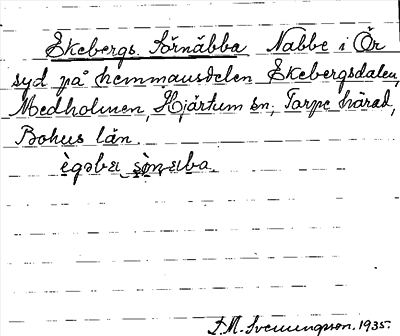 Ekebergs. Sörnäbba Nabbe i Ör
syd på hemmansdelen Ekebergsdalen,
Medholmen, Hjärtum sn; Torpe härad,
Bohus län.
ègəbæ sø̀nəba.
F.M. Svenungsson. 1935.